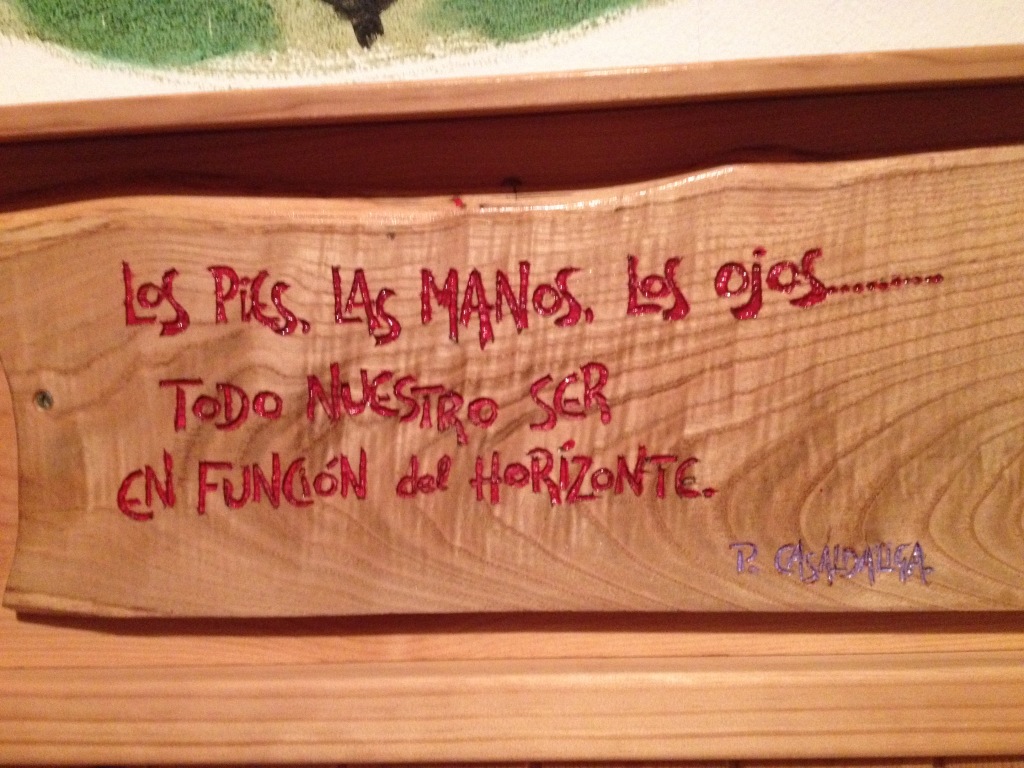 LOS PIES, LAS MANOS, LOS OJOS..........
TODO NUESTRO SER
EN FUNCIÓN del HORIZONTE.
P. CASALDALIGA.